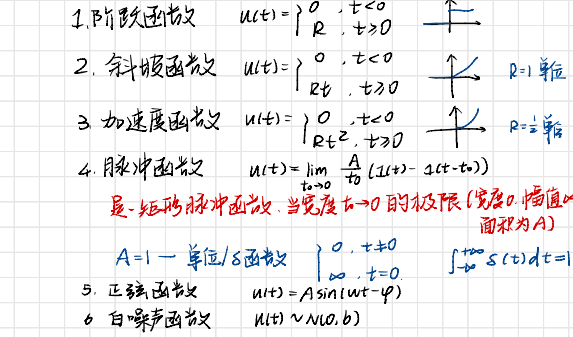 1.阶跃函数 u(t)={0 , t<0
R , t≥0
2. 斜坡函数 u(t)={0 , t<0
Rt , t≥0 R=1 单位
3. 加速度函数 u(t)={0 , t<0
Rt², t≥0 R=½单位
4. 脉冲函数 u(t)=lim t₀→0 A/t₀ (1(t)-1(t-t₀))
是一矩形脉冲函数.当宽度t₀→0的极限(宽度0.幅值∞
面积为A)
A=1 — 单位/δ函数 {0 , t≠0
∞ , t=0. ∫₋∞⁺∞ δ(t)dt=1
5. 正弦函数 u(t)=Asin(wt-φ)
6 白噪声函数 u(t)~N(0,b)